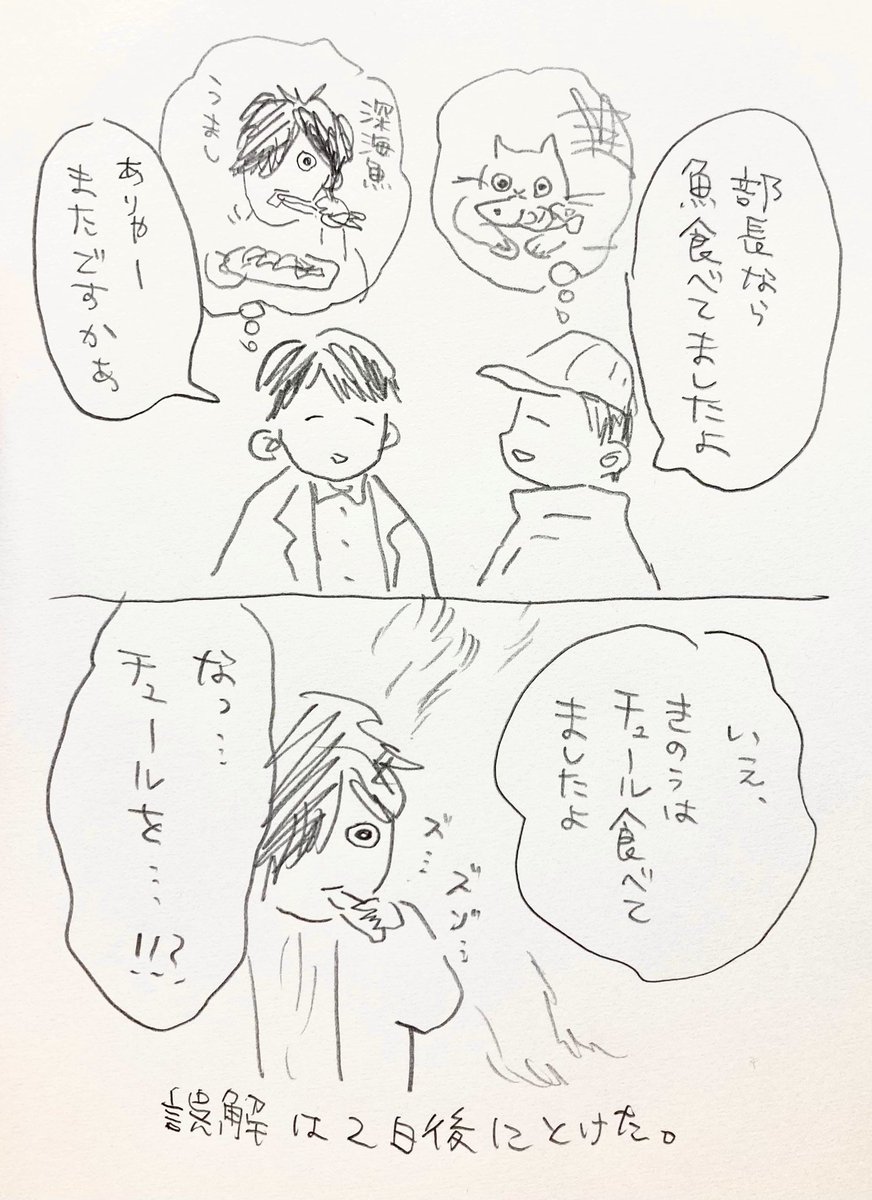 部長なら
魚食べてましたよ
深海魚
うまし
ありゃー
またですかぁ
いえ、
きのうは
チュール食べて
ましたよ
ズ…
ズゾ…
なっ…
チュールを…!!?
誤解は2日後にとけた。